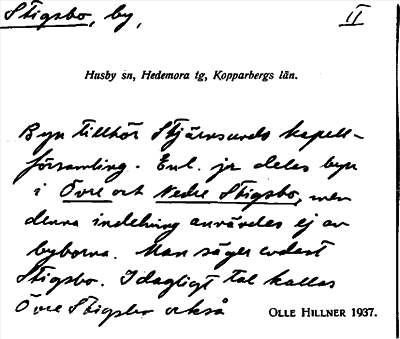 Stigsbo, by, II
Husby sn, Hedemora tg, Kopparbergs län.
Byn tillhör Stjärnsunds kapell-
församling. Enl. jr delas byn
i Övre och Nedre Stigsbo, men
denna indelning användes ej av
byborna. Man säger endast
Stigsbo. I dagligt tal kallas
Övre Stigsbo också OLLE HILLNER 1937.